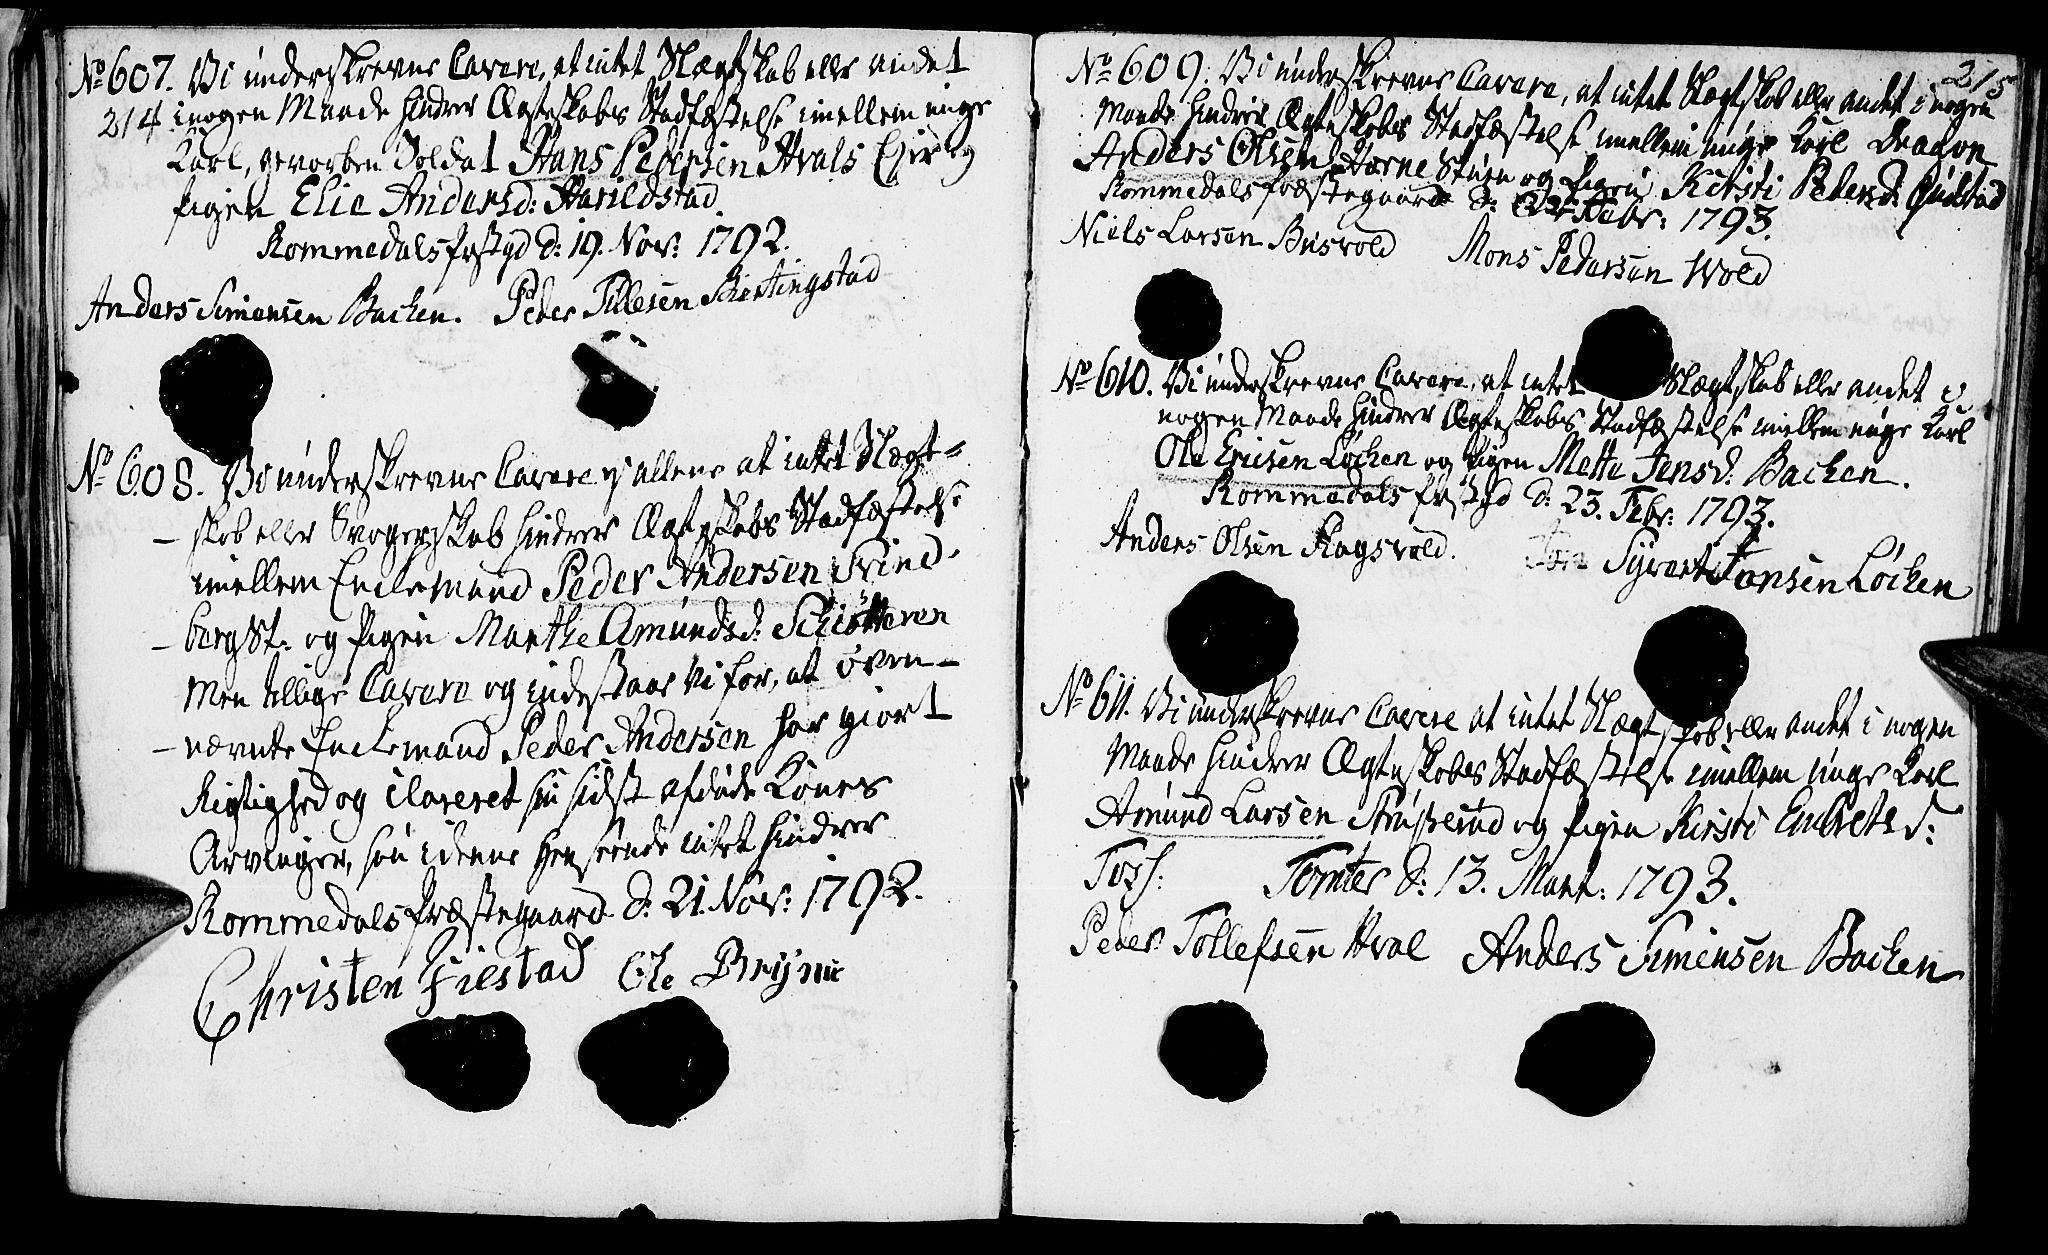 No 607. Vi underskrevne Cavere, at intet Slægtskab eller andet
214 i nogen Maade hindrer Ægteskabs Stadfæstelse imellem unge
Karl, gevorben Soldat Hans Pedersen Hvals Ejer og
Pigen Elie Andersd: Harildstad.
Rommedals Prstgd d: 19. Nov: 1792.
Anders Simensen Bachen. Peder Tillesen
No 608. Vi underskrevne Cavere ej allene at intet Slægt-
skab eller Svogerskab hindrer Ægteskabs Stadfæstelse
imellem Enckemand Peder Andersen Frind-
bergSt. og Pigen Marthe Amundsd:
Men tillige Cavere og indestaar Vi for, at oven-
nævnte Enckemand Peder Andersen har giort
Rigtighed og klareret sin sidst afdøde Kones
Arvinger, saa i denne Henseende intet hindrer
Rommedals Præstegaard d: 21. Nov: 1792.
Christen Fiestad Ole Bryni
215
No 609. Vi underskrevne Cavere, at intet Slægtskab eller andet i nogen
Maade hindrer Ægteskabs Stadfæstelse imellem unge Karl Dragon
Anders Olsen Horne Stuen og Pigen Kirsti Pedersd: Gustad
Rommedals Præstegaard d: Febr: 1793.
Niels Larsen Busvold Mons Pedersen Wold
No 610. Vi underskrevne Cavere, at intet Slægtskab eller andet i
nogen Maade hindrer Ægteskabs Stadfæstelse imellem unge Karl
Ole Ericsen Løchen og Pigen Mette Jensd: Bachen.
Rommedals Prstgd d: 23. Febr: 1793.
Anders Olsen Flagsvold. Syvert Jansen Løchen
No 611. Vi underskrevne Cavere at intet Slægtskab eller andet i nogen
Maade hindrer Ægteskabs Stadfæstelse imellem unge Karl
Amund Larsen og Pigen Kirsti Embrets d:
Torp: Tomter d: 13. Mart: 1793.
Peder Tollefsen Hval Anders Simensen Bachen